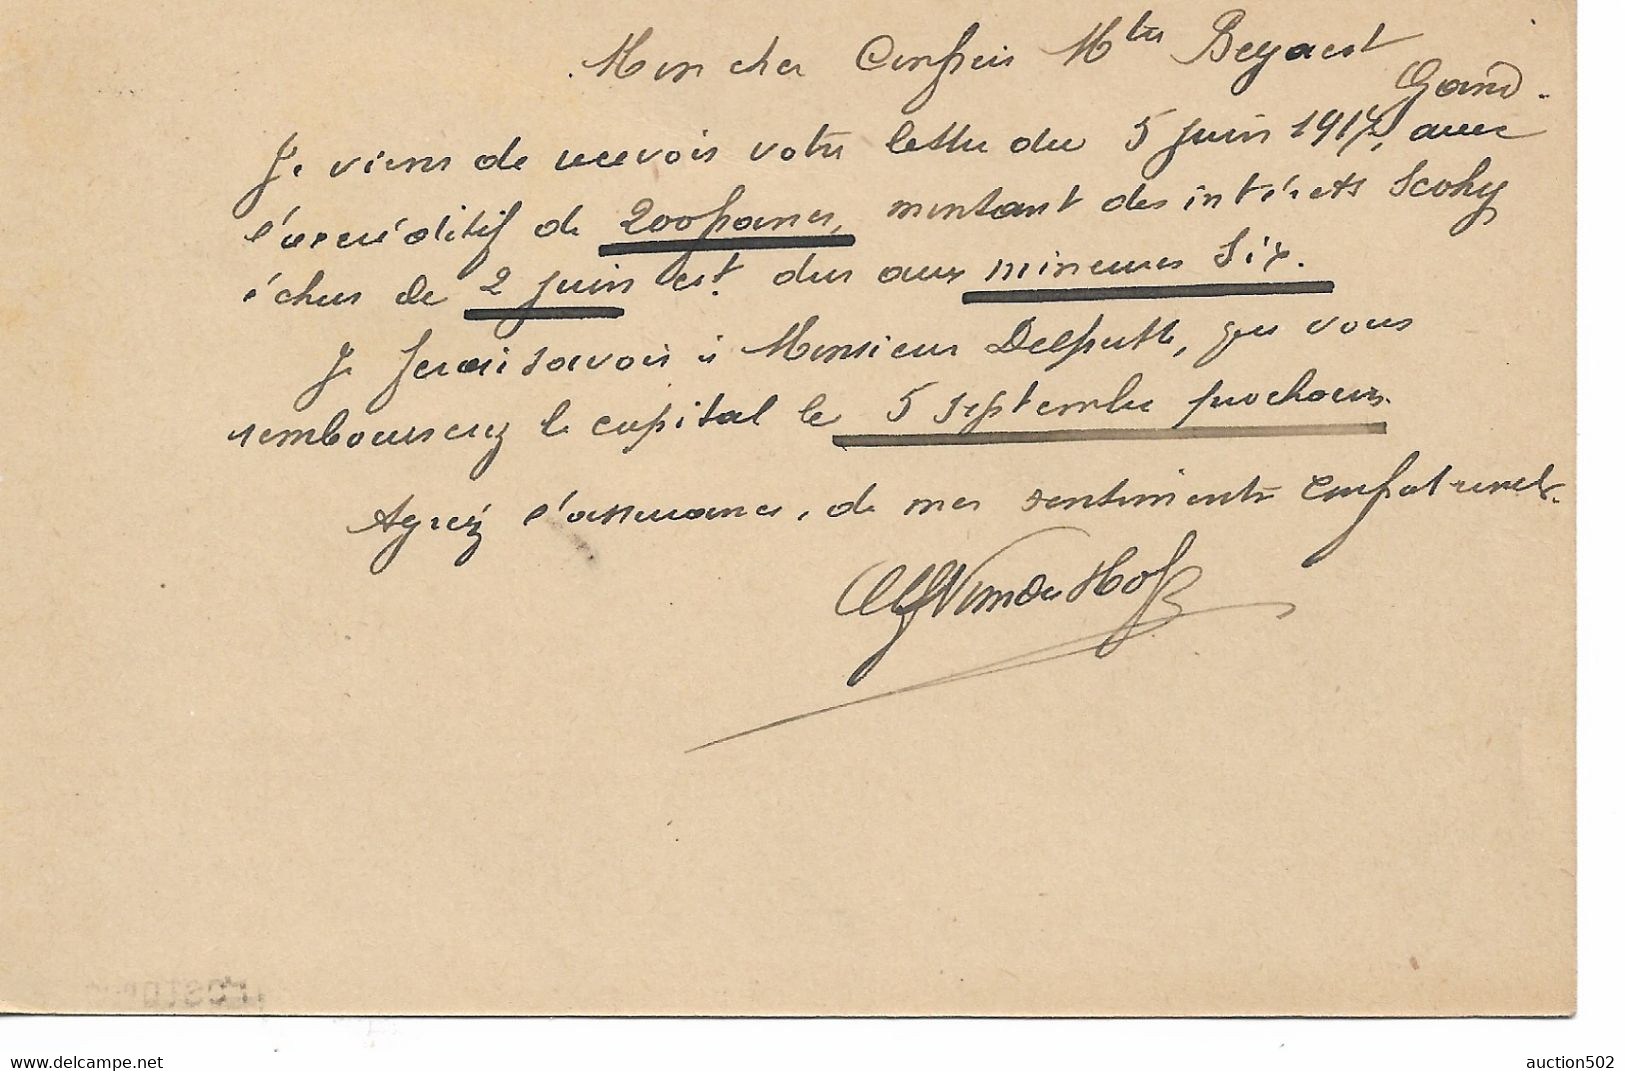 Mon cher Confrère Mtre Beyaert
Gand.
Je viens de recevoir votre lettre du 5 Juin 1917, avec
l'accréditif de 200 francs, montant des intérêts Scohy
échus le 2 Juin et dus aux mineures Six.
Je ferai savoir à Monsieur Delputte, que vous
rembourserez le capital le 5 septembre prochain.
Agréez l'assurance, de mes sentiments confraternels.
Alf Vander Hof
auction502
https://www.delcampe.net